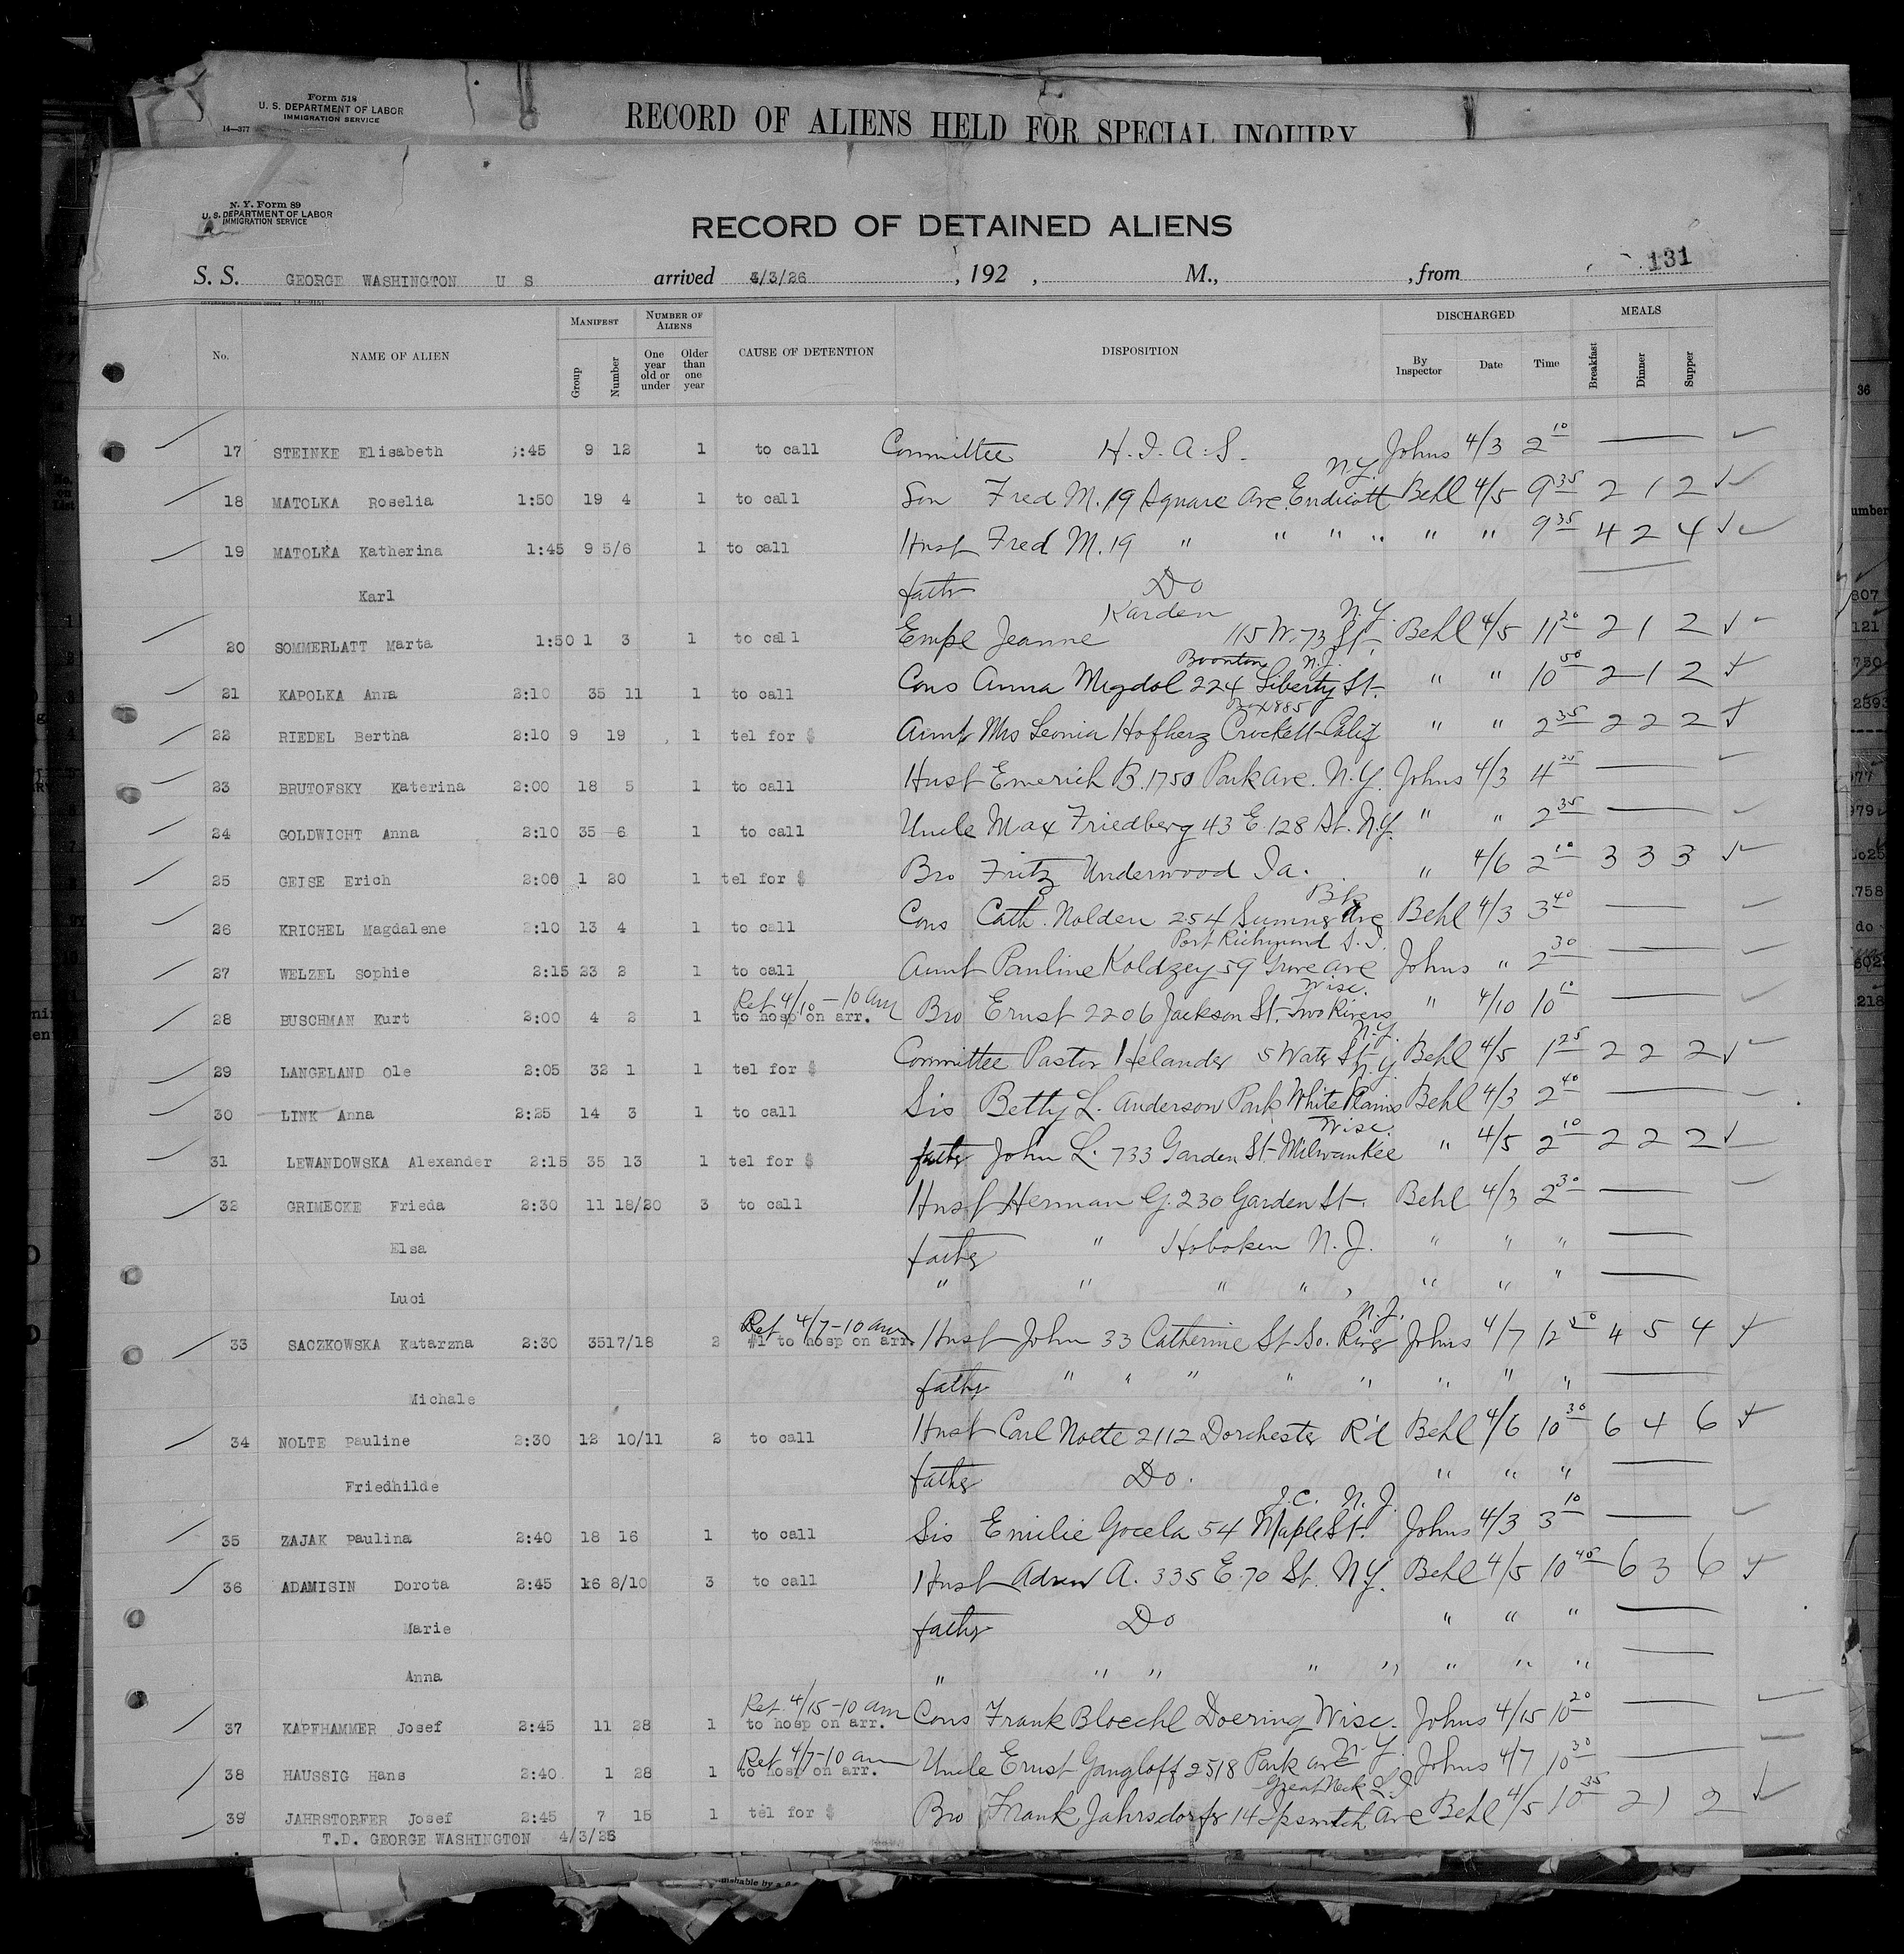 Form 518
U. S. DEPARTMENT OF LABOR
IMMIGRATION SERVICE
14—377
RECORD OF ALIENS HELD FOR SPECIAL INQUIRY
N. Y. Form 89
U. S. DEPARTMENT OF LABOR
IMMIGRATION SERVICE
RECORD OF DETAINED ALIENS
131
S. S. GEORGE WASHINGTON U S arrived 4/3/26, 192 , M., , from
No. NAME OF ALIEN MANIFEST Group Number NUMBER OF ALIENS One year old or under Older than one year CAUSE OF DETENTION DISPOSITION DISCHARGED By Inspector Date Time MEALS Breakfast Dinner Supper
17 STEINKE Elisabeth :45 9 12 1 to call Committee H. I. A. S. Johns 4/3 2 10
18 MATOLKA Roselia 1:50 19 4 1 to call Son Fred M. 19 Square Ave. Endicott N.Y. Behl 4/5 9 35 2 1 2
19 MATOLKA Katherina 1:45 9 5/6 1 to call Husb Fred M. 19 " " " " " " 9 35 4 2 4
Karl fath Do
20 SOMMERLATT Marta 1:50 1 3 1 to call Empl Jeanne Karden 115 W. 73 St. N.Y. Behl 4/5 11 20 2 1 2
21 KAPOLKA Anna 2:10 35 11 1 to call Cons Anna Migdol 224 Liberty St. Boonton N.J. " " 10 50 2 1 2
22 RIEDEL Bertha 2:10 9 19 1 tel for $ Aunt Mrs Leonia Hofherz Box 885 Crockett Calif " " 2 35 2 2 2
23 BRUTOFSKY Katerina 2:00 18 5 1 to call Husb Emerich B. 1750 Park Ave. N.Y. Johns 4/3 4 25
24 GOLDWICHT Anna 2:10 35 6 1 to call Uncle Max Friedberg 43 E. 128 St. N.Y. " " 2 35
25 GEISE Erich 2:08 1 20 1 tel for $ Bro Fritz Underwood Ia. " 4/6 2 10 3 3 3
26 KRICHEL Magdalene 2:10 13 4 1 to call Cons Cath. Nolden 254 Sumner Ave Bk Behl 4/3 3 40
27 WELZEL Sophie 2:15 23 2 1 to call Aunt Pauline Koldzey 59 Grove Ave Port Richmond S.I. Johns " 2 30
28 BUSCHMAN Kurt 2:00 4 2 1 Ret 4/10 - 10 am to hosp on arr. Bro Ernst 2206 Jackson St. Two Rivers Wisc. " 4/10 10 10
29 LANGELAND Ole 2:05 32 1 1 tel for $ Committee Pastor Helander 5 Water St. N.Y. Behl 4/5 1 25 2 2 2
30 LINK Anna 2:25 14 3 1 to call Sis Betty L. Anderson Park White Plains N.Y. Behl 4/3 2 40
31 LEWANDOWSKA Alexander 2:15 35 13 1 tel for $ fath John L. 733 Garden St. Milwaukee Wisc. " 4/5 2 10 2 2 2
32 GRIMECKE Frieda 2:30 11 18/20 3 to call Husb Herman G. 230 Garden St. Behl 4/3 2 30
Elsa father " Hoboken N.J. " " "
Luci " " " " , " " "
33 SACZKOWSKA Katarzna 2:30 35 17/18 2 Ret 4/7-10 am #1 to hosp on arr. Husb John 33 Catherine St. So. River N.J. Johns 4/7 12 50 4 5 4
Michale father " " " " " " " "
34 NOLTE Pauline 2:30 12 10/11 2 to call Husb Carl Nolte 2112 Dorchester R'd Behl 4/6 10 30 6 4 6
Friedhilde father Do. " " "
35 ZAJAK Paulina 2:40 18 16 1 to call Sis Emilie Gocela 54 Maple St. J.C. N.J. Johns 4/3 3 10
36 ADAMISIN Dorota 2:45 16 8/10 3 to call Husb Adrew A. 335 E. 70 St. N.Y. Behl 4/5 10 45 6 3 6
Marie father Do " " "
Anna " " " " " " " "
37 KAPFHAMMER Josef 2:45 11 28 1 Ret 4/15-10 am to hosp on arr. Cons Frank Bloechl Doering Wisc. Johns 4/15 10 20
38 HAUSSIG Hans 2:40 1 28 1 Ret 4/7-10 am to hosp on arr. Uncle Ernst Gangloff 2518 Park Ave N.Y. Johns 4/7 10 30
39 JAHRSTORFER Josef 2:45 7 15 1 tel for $ Bro Frank Jahrsdorfer 14 Ipswitch Ave Great Neck L.I. Behl 4/5 10 35 2 1 2
T.D. GEORGE WASHINGTON 4/3/26